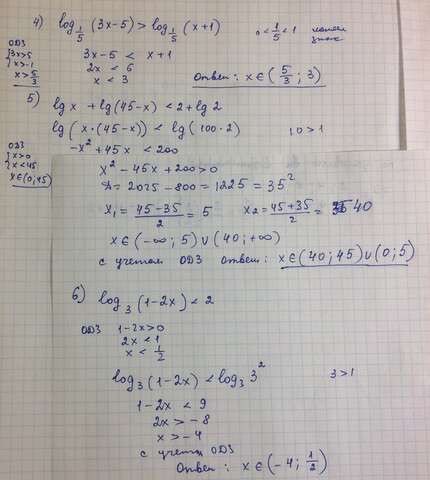 4) log_{1/5} (3x-5) > log_{1/5} (x+1)   0 < 1/5 < 1   меняем знак
ОДЗ
{ 3x>5
x>-1
x > 5/3
3x-5 < x+1
2x < 6
x < 3
Ответ: x ∈ (5/3; 3)
5) lg x + lg(45-x) < 2 + lg 2
lg (x·(45-x)) < lg (100·2)   10 > 1
ОДЗ
{ x>0
x<45
x∈(0;45)
-x² + 45x < 200
x² - 45x + 200 > 0
D = 2025 - 800 = 1225 = 35²
x₁ = (45-35)/2 = 5   x₂ = (45+35)/2 = 40
x ∈ (-∞; 5) ∪ (40; +∞)
с учетом ОДЗ Ответ: x ∈ (40; 45) ∪ (0; 5)
6) log₃ (1-2x) < 2
ОДЗ 1-2x>0
2x<1
x < 1/2
log₃ (1-2x) < log₃ 3²   3 > 1
1-2x < 9
2x > -8
x > -4
с учетом ОДЗ
Ответ: x ∈ (-4; 1/2)